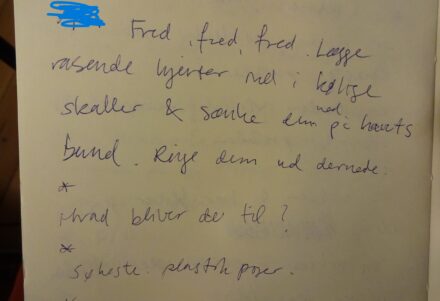 Fred, fred, fred. Lægge
rasende hjerter ned i kølige
skaller & sænke dem ned på havets
bund. Ringe dem ud dernede.
*
Hvad bliver de til?
*
Søheste. plastik poser.